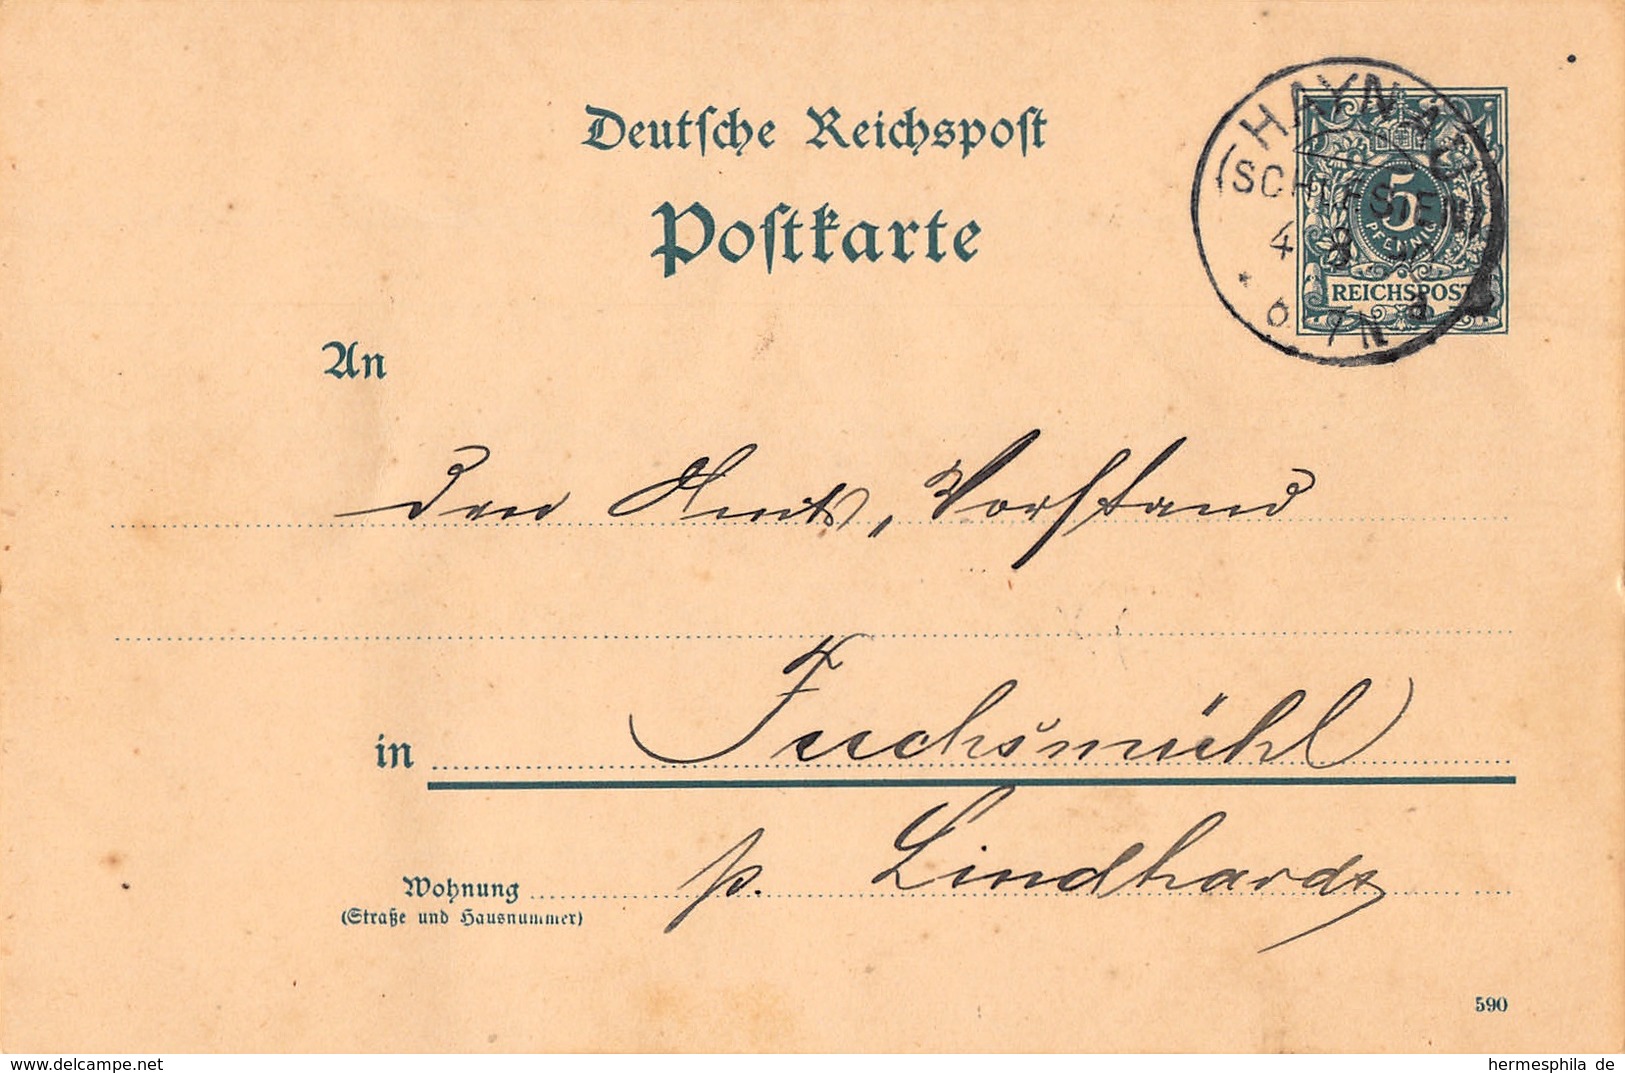 Deutsche Reichspost
Postkarte
HAYNAU
(SCHLESIEN)
4 8
6-7N
5
PFENNIG
REICHSPOST
An
den Amts-Vorstand
in Fuchsmühl
Wohnung p. Lindhardt
(Straße und Hausnummer)
590
www.delcampe.net
hermesphila de